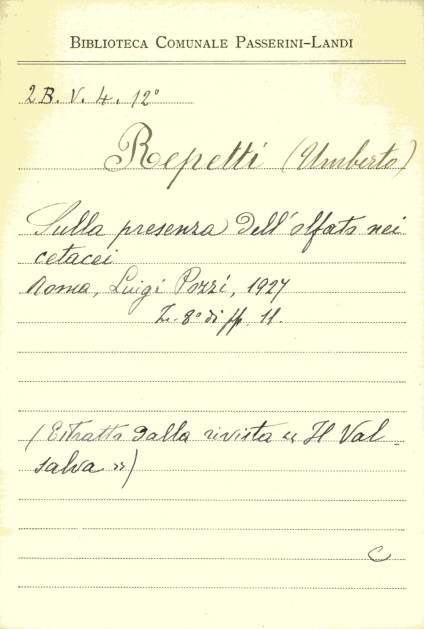 BIBLIOTECA COMUNALE PASSERINI-LANDI
2B. V. 4. 12°
Repetti (Umberto)
Sulla presenza dell'olfato nei
cetacei
Roma, Luigi Pozzi, 1927
in 8° di pp. 11.
(Estratto dalla rivista « Il Val-
salva »)
C